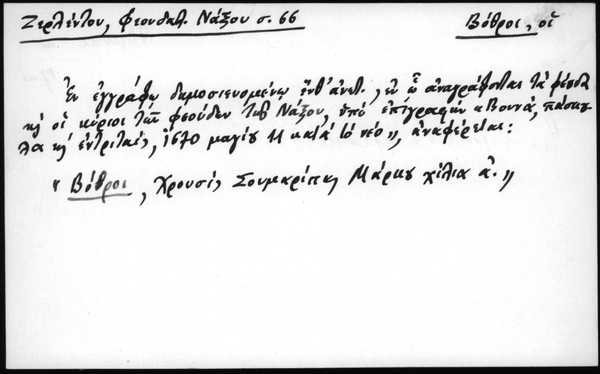 Ζερλέντου, Φεουδαλ. Νάξου σ. 66
Βόθροι, οἱ
Ἐν ἐγγράφῳ δημοσιευομένῳ ἔνθ' ἀνωτ., ἐν ᾧ ἀναγράφονται τὰ φέουδα
κὴ οἱ κύριοι τῶν φεούδων τῆς Νάξου, ὑπὸ ἐπιγραφὴν "Βουνά,
κὴ ἐντριταίς, 1670 μαγίου 11 κατὰ τὸ νέο", ἀναφέρεται:
"Βόθροι, Χρουσῆς Σουμαρίπας Μάρκου χίλια ἄ."